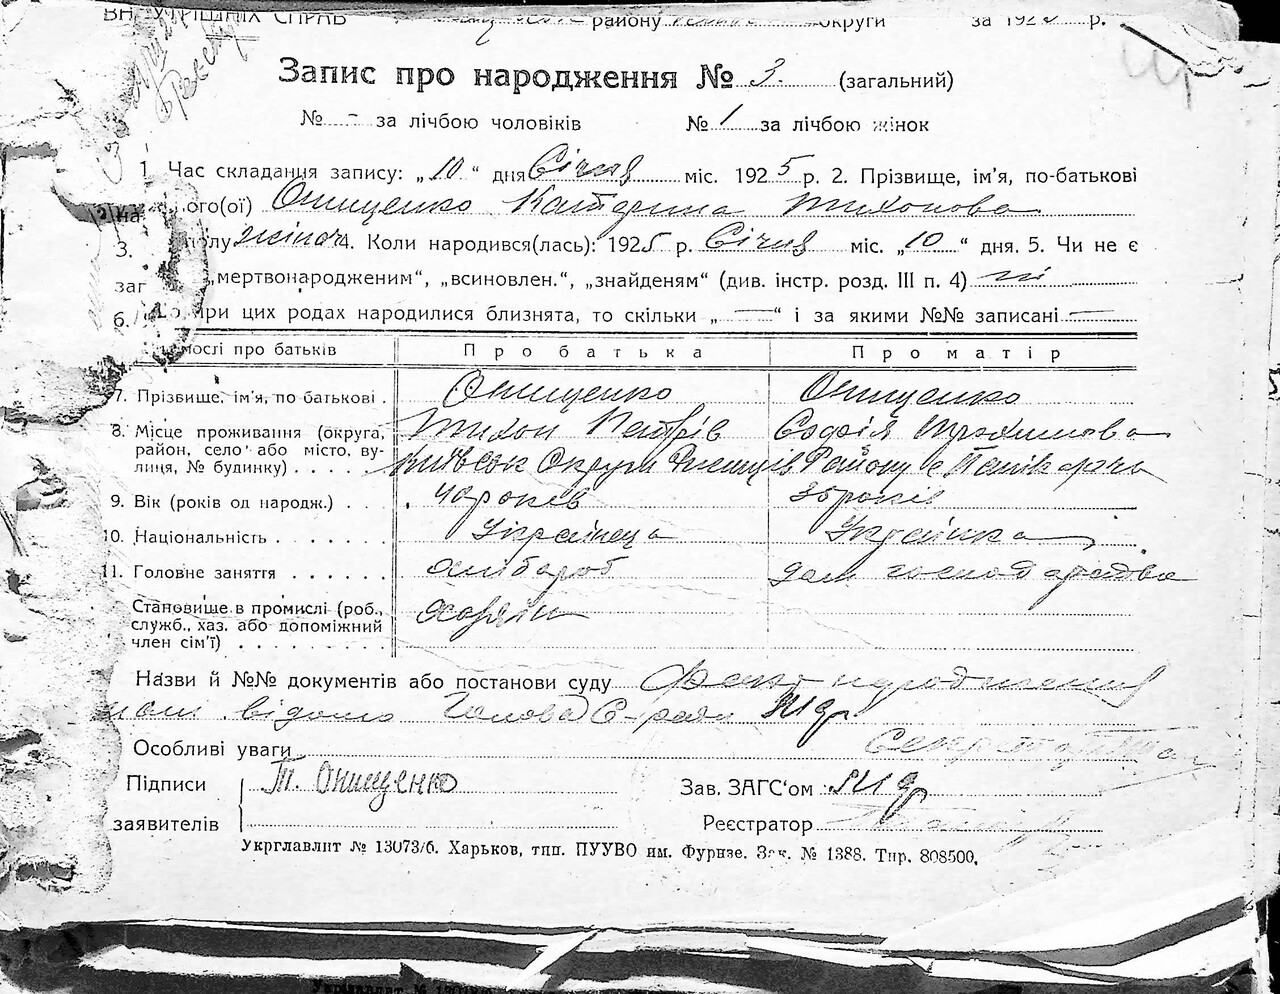 ВНУТРІШНІХ СПРАВ району округи за 192 р.
Запис про народження № 3. (загальний)
№ - за лічбою чоловіків № 1 за лічбою жінок
1. Час складання запису: „10“ дня Січня міс. 1925 р. 2. Прізвище, ім'я, по-батькові
на ого(ої) Онищенко Катерина Тихонова
3. полу жіноч 4. Коли народився(лась): 1925 р. Січня міс. „10“ дня. 5. Чи не є
заг „мертвонародженим“, „всиновлен.“, „знайденям“ (див. інстр. розд. III п. 4) ні
6. при цих родах народилися близнята, то скільки „—“ і за якими №№ записані —
мості про батьків Про батька Про матір
7. Прізвище, ім'я, по батькові . Онищенко Онищенко
Тихон Петрів Софія
8. Місце проживання (округа, район, село або місто, вулиця, № будинку) . . . . Київськ Округи Району с
9. Вік (років од народж.) . . . років років
10. Національність . . . . . . Українець Українка
11. Головне заняття . . . . . . хлібороб дом господарства
Становище в промислі (роб., служб., хаз. або допоміжний член сім'ї) . . . . . . . . хазяїн
Назви й №№ документів або постанови суду Факт народження
нам відомо Голова С-ради
Особливі уваги
Підписи Т. Онищенко Зав. ЗАГС'ом
заявителів Реєстратор
Укрглавлит № 13073/6. Харьков, тип. ПУУВО им. Фрунзе. Зак. № 1388. Тир. 808500.